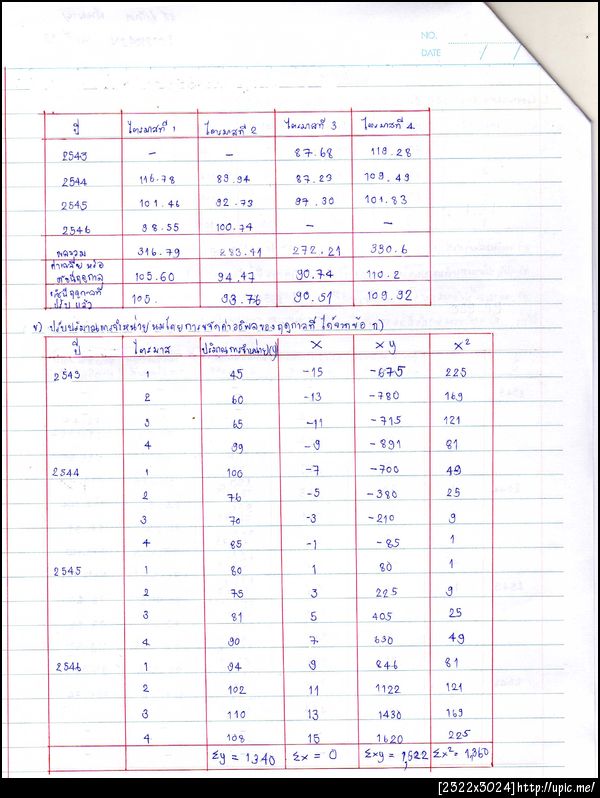 NO.
DATE / /
ปี ไตรมาสที่ 1 ไตรมาสที่ 2 ไตรมาสที่ 3 ไตรมาสที่ 4.
2543 - - 87.68 119.28
2544 116.78 89.94 87.23 109.49
2545 101.46 92.73 97.30 101.83
2546 98.55 100.74 - -
ผลรวม 316.79 283.41 272.21 330.6
ค่าเฉลี่ย หรือ
ดัชนีฤดูกาล 105.60 94.47 90.74 110.2
ดัชนีฤดูกาลที่
ปรับ แล้ว 105. 93.76 90.51 109.92
ข) ปรับปริมาณการจำหน่าย นมโดยการขจัดค่าอิทธิพลของฤดูกาลที่ ได้จากข้อ ก)
ปี ไตรมาส ปริมาณการจำหน่าย(y) X xy x²
2543 1 45 -15 -675 225
2 60 -13 -780 169
3 65 -11 -715 121
4 99 -9 -891 81
2544 1 100 -7 -700 49
2 76 -5 -380 25
3 70 -3 -210 9
4 85 -1 -85 1
2545 1 80 1 80 1
2 75 3 225 9
3 81 5 405 25
4. 90 7 630 49
2546 1 94 9 846 81
2 102 11 1122 121
3 110 13 1430 169
4 108 15 1620 225
Σy = 1,340 Σx = 0 Σxy = 1,822 Σx² = 1,360
[2322x3024]http://upic.me/